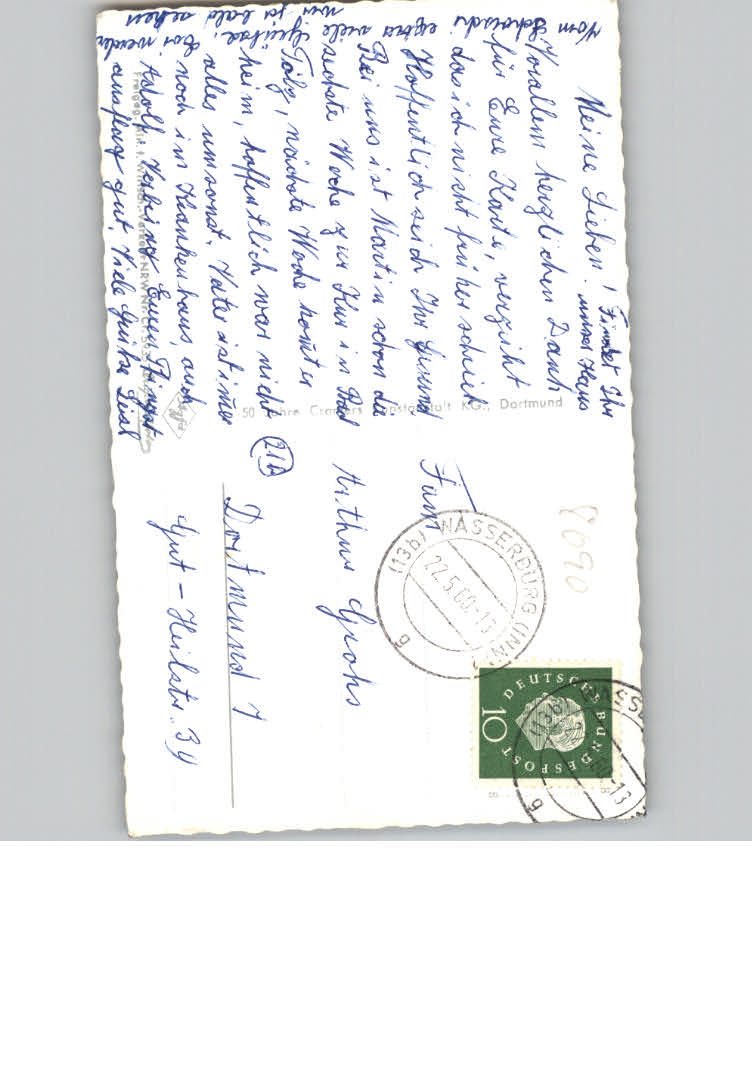 Meine Lieben! Findet Ihr
unser Haus
Vorallem herzlichen Dank
für Eure Karte, verzeiht
das ich nicht früher schrieb
Hoffentlich seid Ihr gesund
Bei uns ist Martin schon die
sechste Woche zur Kur in Bad
Tölz, nächste Woche kommt er
heim, hoffentlich war nicht
alles umsonst. Vater ist immer
noch im Krankenhaus, auch
Adolf. Verbingt Euren Pfingst
ausflug gut. Viele Grüße Liesl
Vom Schorschi extra viele Grüße. Wir werden
uns ja bald sehen
50 Jahre Cramers Kunstanstalt KG., Dortmund
Fam
Arthur Grohs
(21b)
Dortmund 1
Gut-Heilstr. 34
8090
(13b) WASSERBURG (INN)
22.5.60-13
b
DEUTSCHE BUNDESPOST
10
(13b) WASSE
-13
b